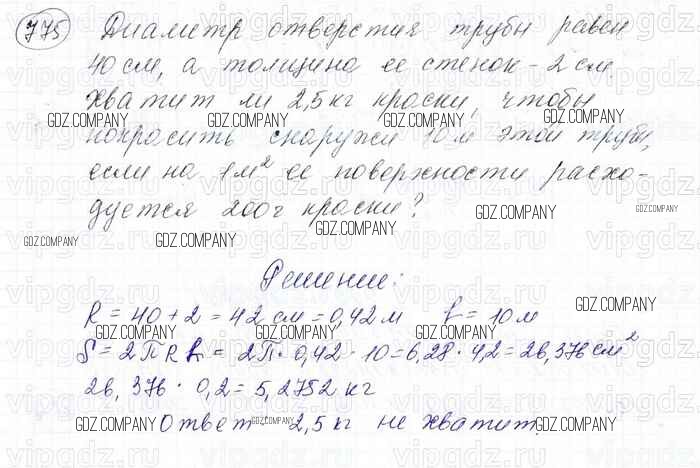 775 Диаметр отверстия трубы равен
40 см, а толщина ее стенок - 2 см.
Хватит ли 2,5 кг краски, чтобы
покрасить снаружи 10 м этой трубы,
если на 1 м² ее поверхности расхо-
дуется 200 г краски?
Решение:
R = 40 + 2 = 42 см = 0,42 м ℓ = 10 м
S = 2πRℓ = 2π · 0,42 · 10 = 6,28 · 4,2 = 26,376 см²
26,376 · 0,2 = 5,2752 кг
Ответ 2,5 кг не хватит.
GDZ.COMPANY
vipgdz.ru